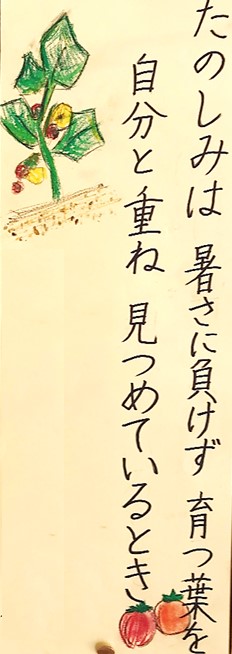 たのしみは 暑さに負けず 育つ葉を
自分と重ね 見つめているとき